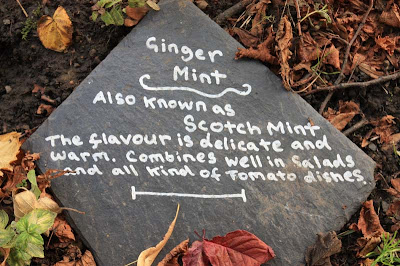 Ginger
Mint
Also known as
Scotch Mint
The flavour is delicate and
warm. Combines well in Salads
and all kind of Tomato dishes.